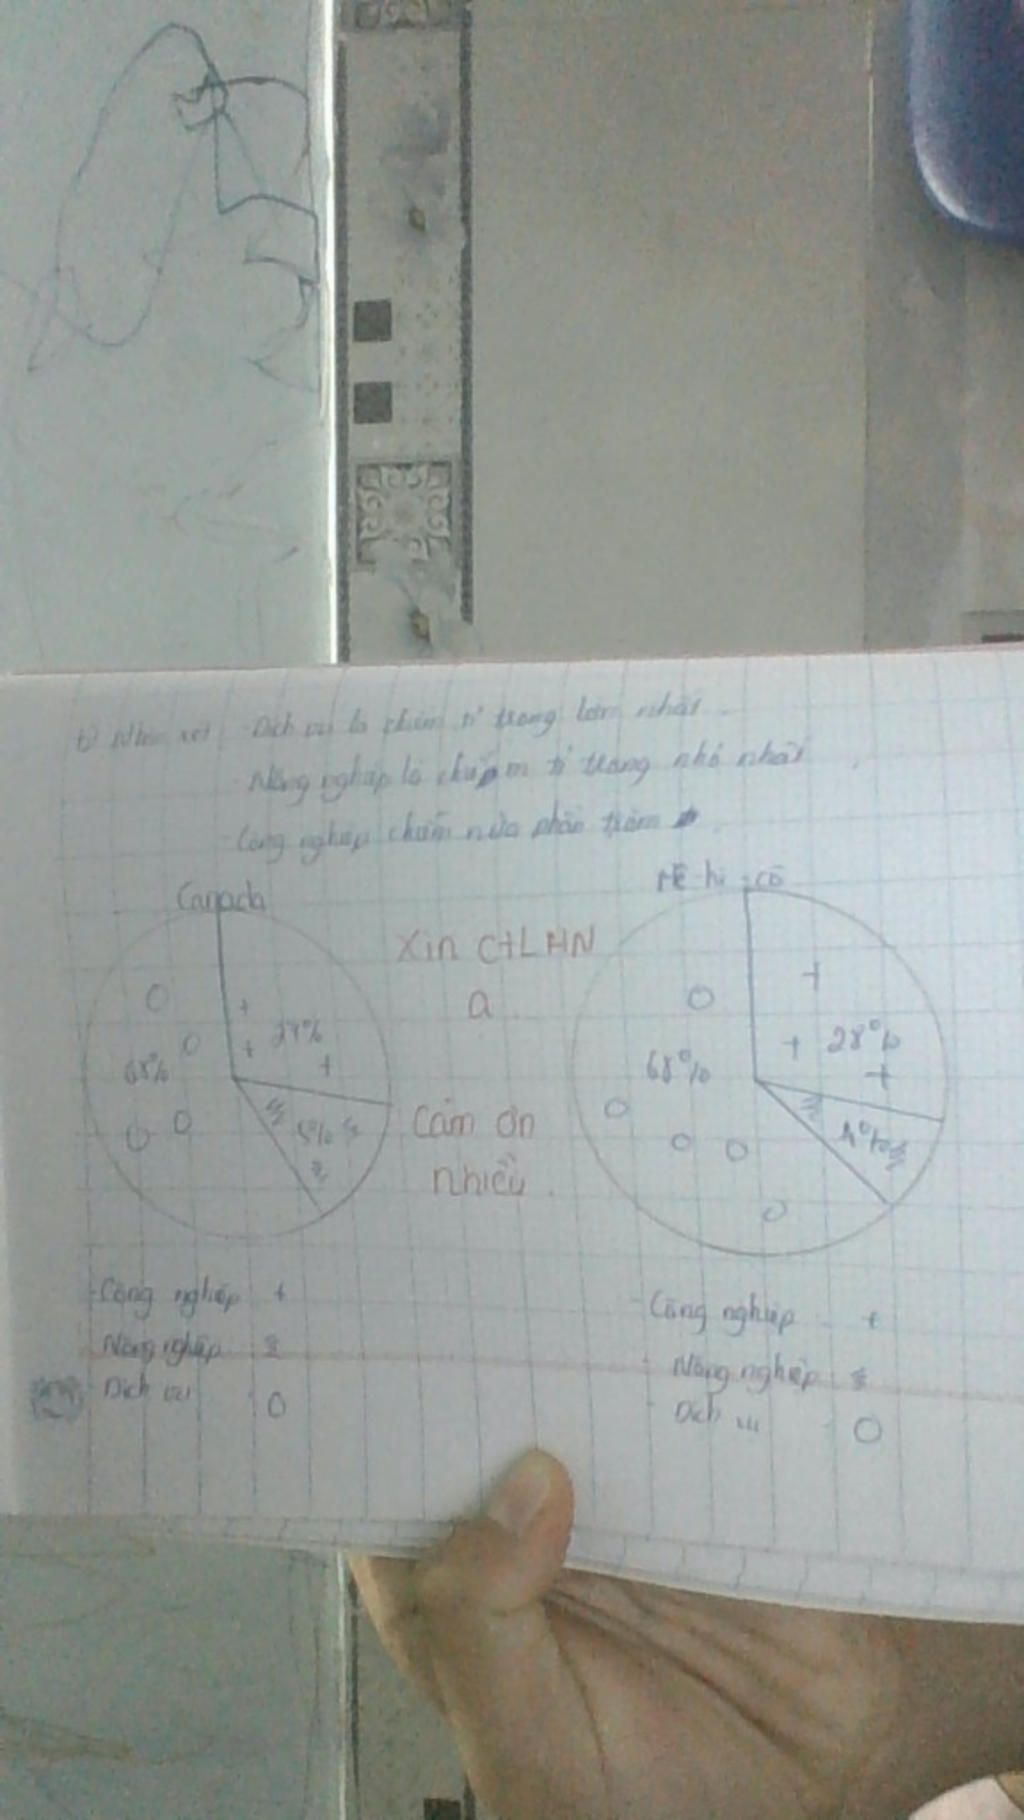 b) Nhận xét - Dịch vụ là chiếm tỉ trọng lớn nhất.
- Nông nghiệp là chiếm tỉ trọng nhỏ nhất.
- Công nghiệp chiếm nửa phần trăm
Canada
Mê-hi-cô
Xin CTLHN
ạ.
27%
68%
5%
28%
68%
4%
Cảm ơn
nhiều.
- Công nghiệp : +
- Nông nghiệp :
- Dịch vụ : O
- Công nghiệp : +
- Nông nghiệp :
- Dịch vụ : O